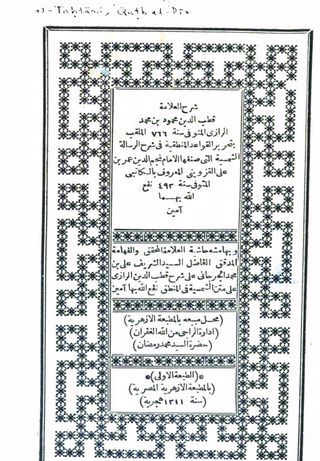 al-Taḥtānī, Quṭb al-Dīn
شرح العلامة
قطب الدين محمود بن محمد
الرازى المتوفى سنة ٧٦٦ الملقب
بتحرير القواعد المنطقية فى شرح الرسالة
الشمسية التى صنفها الامام نجم الدين عمر بن
على القزوينى المعروف بالكاتبى
المتوفى سنة ٤٩٣ نفع
الله بهما
آمين
وبهامشه حاشية العلامة المحقق والفهامة
المدقق الفاضل السيد الشريف على بن
محمد الجرجانى على شرح قطب الدين الرازى
على متن الشمسية فى المنطق نفع الله بها آمين
(محل مبيعه بالمطبعة الازهرية)
(ادارة الراجى من الله الغفران)
(حضرة السيد محمد رمضان)
*(الطبعة الاولى)*
(بالمطبعة الازهرية المصرية)
(سنة ١٣١١ هجرية)